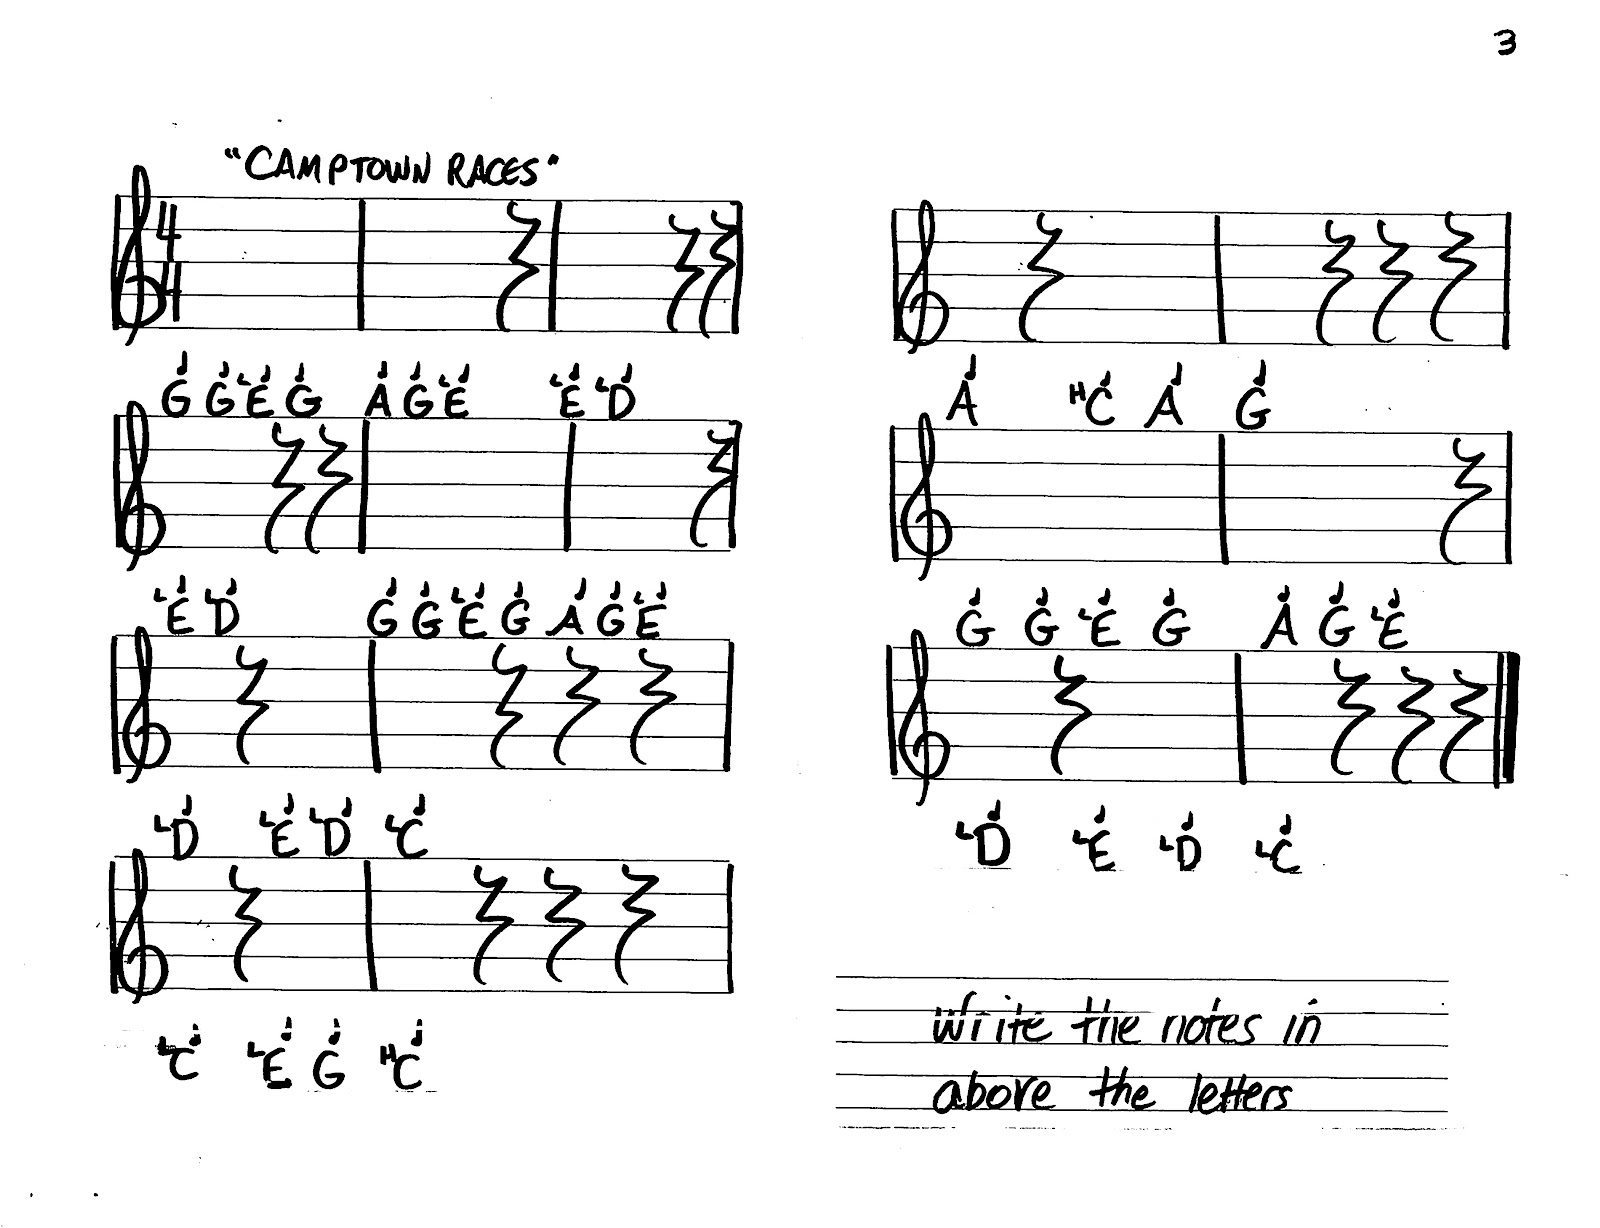 3
"CAMPTOWN RACES"
4
4
G G LE G A G LE LE LD
LE LD G G LE G A G LE
LD LE LD LC
LC LE G HC
A HC A G
G G LE G A G LE
LD LE LD LC
write the notes in
above the letters